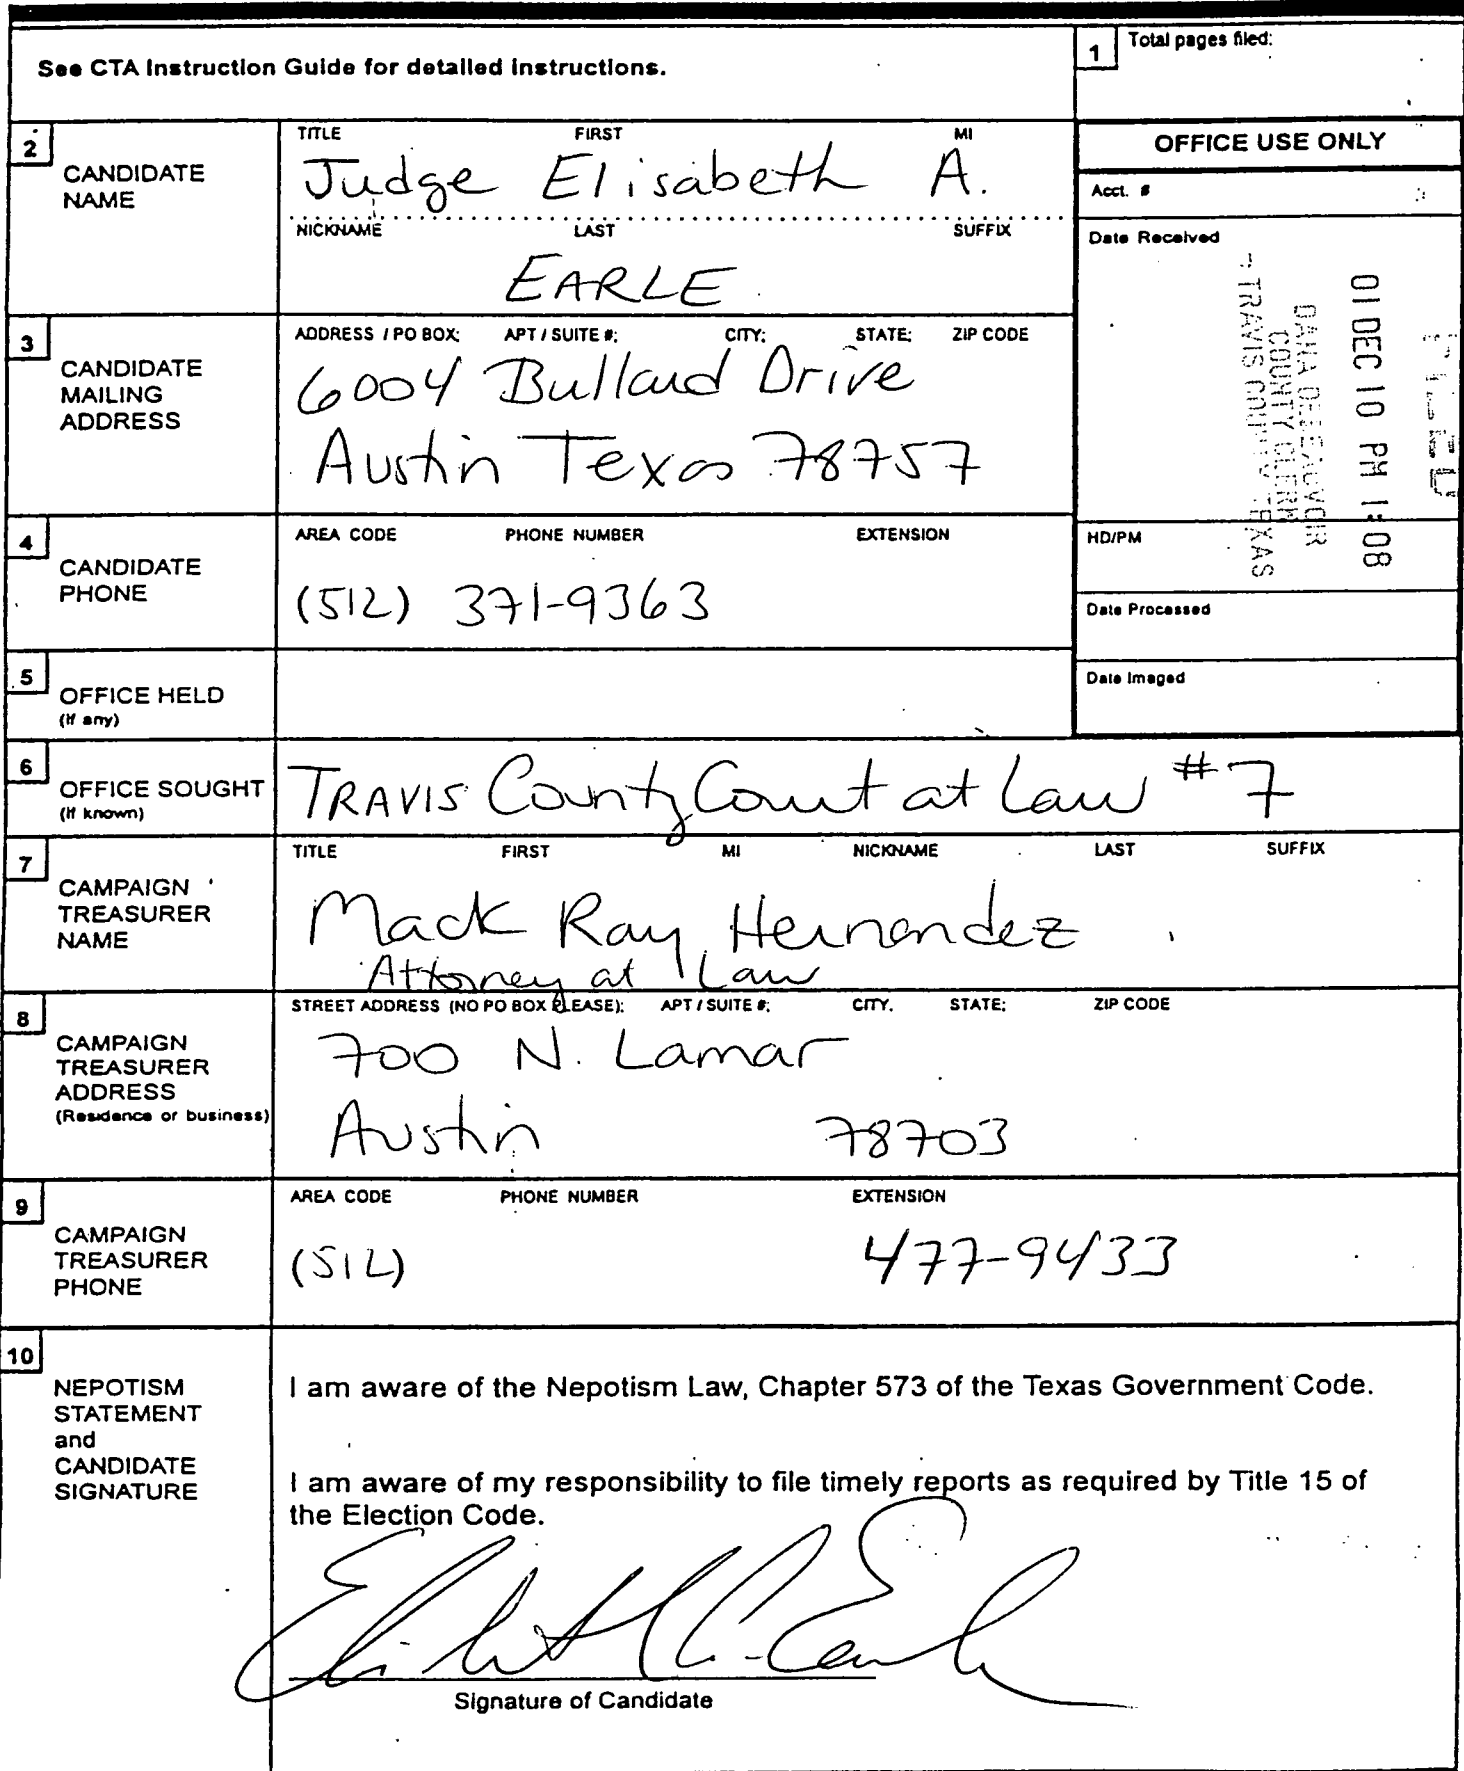 See CTA Instruction Guide for detailed instructions.
1 Total pages filed:
2 CANDIDATE NAME
TITLE FIRST MI
Judge Elisabeth A.
NICKNAME LAST SUFFIX
EARLE
OFFICE USE ONLY
Acct. #
Date Received
FILED
01 DEC 10 PM 1:08
DANA DEBEAUVOIR
COUNTY CLERK
TRAVIS COUNTY TEXAS
HD/PM
Date Processed
Date Imaged
3 CANDIDATE MAILING ADDRESS
ADDRESS / PO BOX; APT / SUITE #; CITY; STATE; ZIP CODE
6004 Bullard Drive
Austin Texas 78757
4 CANDIDATE PHONE
AREA CODE PHONE NUMBER EXTENSION
(512) 371-9363
5 OFFICE HELD
(if any)
6 OFFICE SOUGHT
(if known)
TRAVIS County Court at Law #7
7 CAMPAIGN TREASURER NAME
TITLE FIRST MI NICKNAME LAST SUFFIX
Mack Ray Hernandez
Attorney at Law
8 CAMPAIGN TREASURER ADDRESS
(Residence or business)
STREET ADDRESS (NO PO BOX PLEASE); APT / SUITE #; CITY; STATE; ZIP CODE
700 N. Lamar
Austin 78703
9 CAMPAIGN TREASURER PHONE
AREA CODE PHONE NUMBER EXTENSION
(512) 477-9433
10 NEPOTISM STATEMENT and CANDIDATE SIGNATURE
I am aware of the Nepotism Law, Chapter 573 of the Texas Government Code.
I am aware of my responsibility to file timely reports as required by Title 15 of
the Election Code.
Elisabeth A. Earle
Signature of Candidate